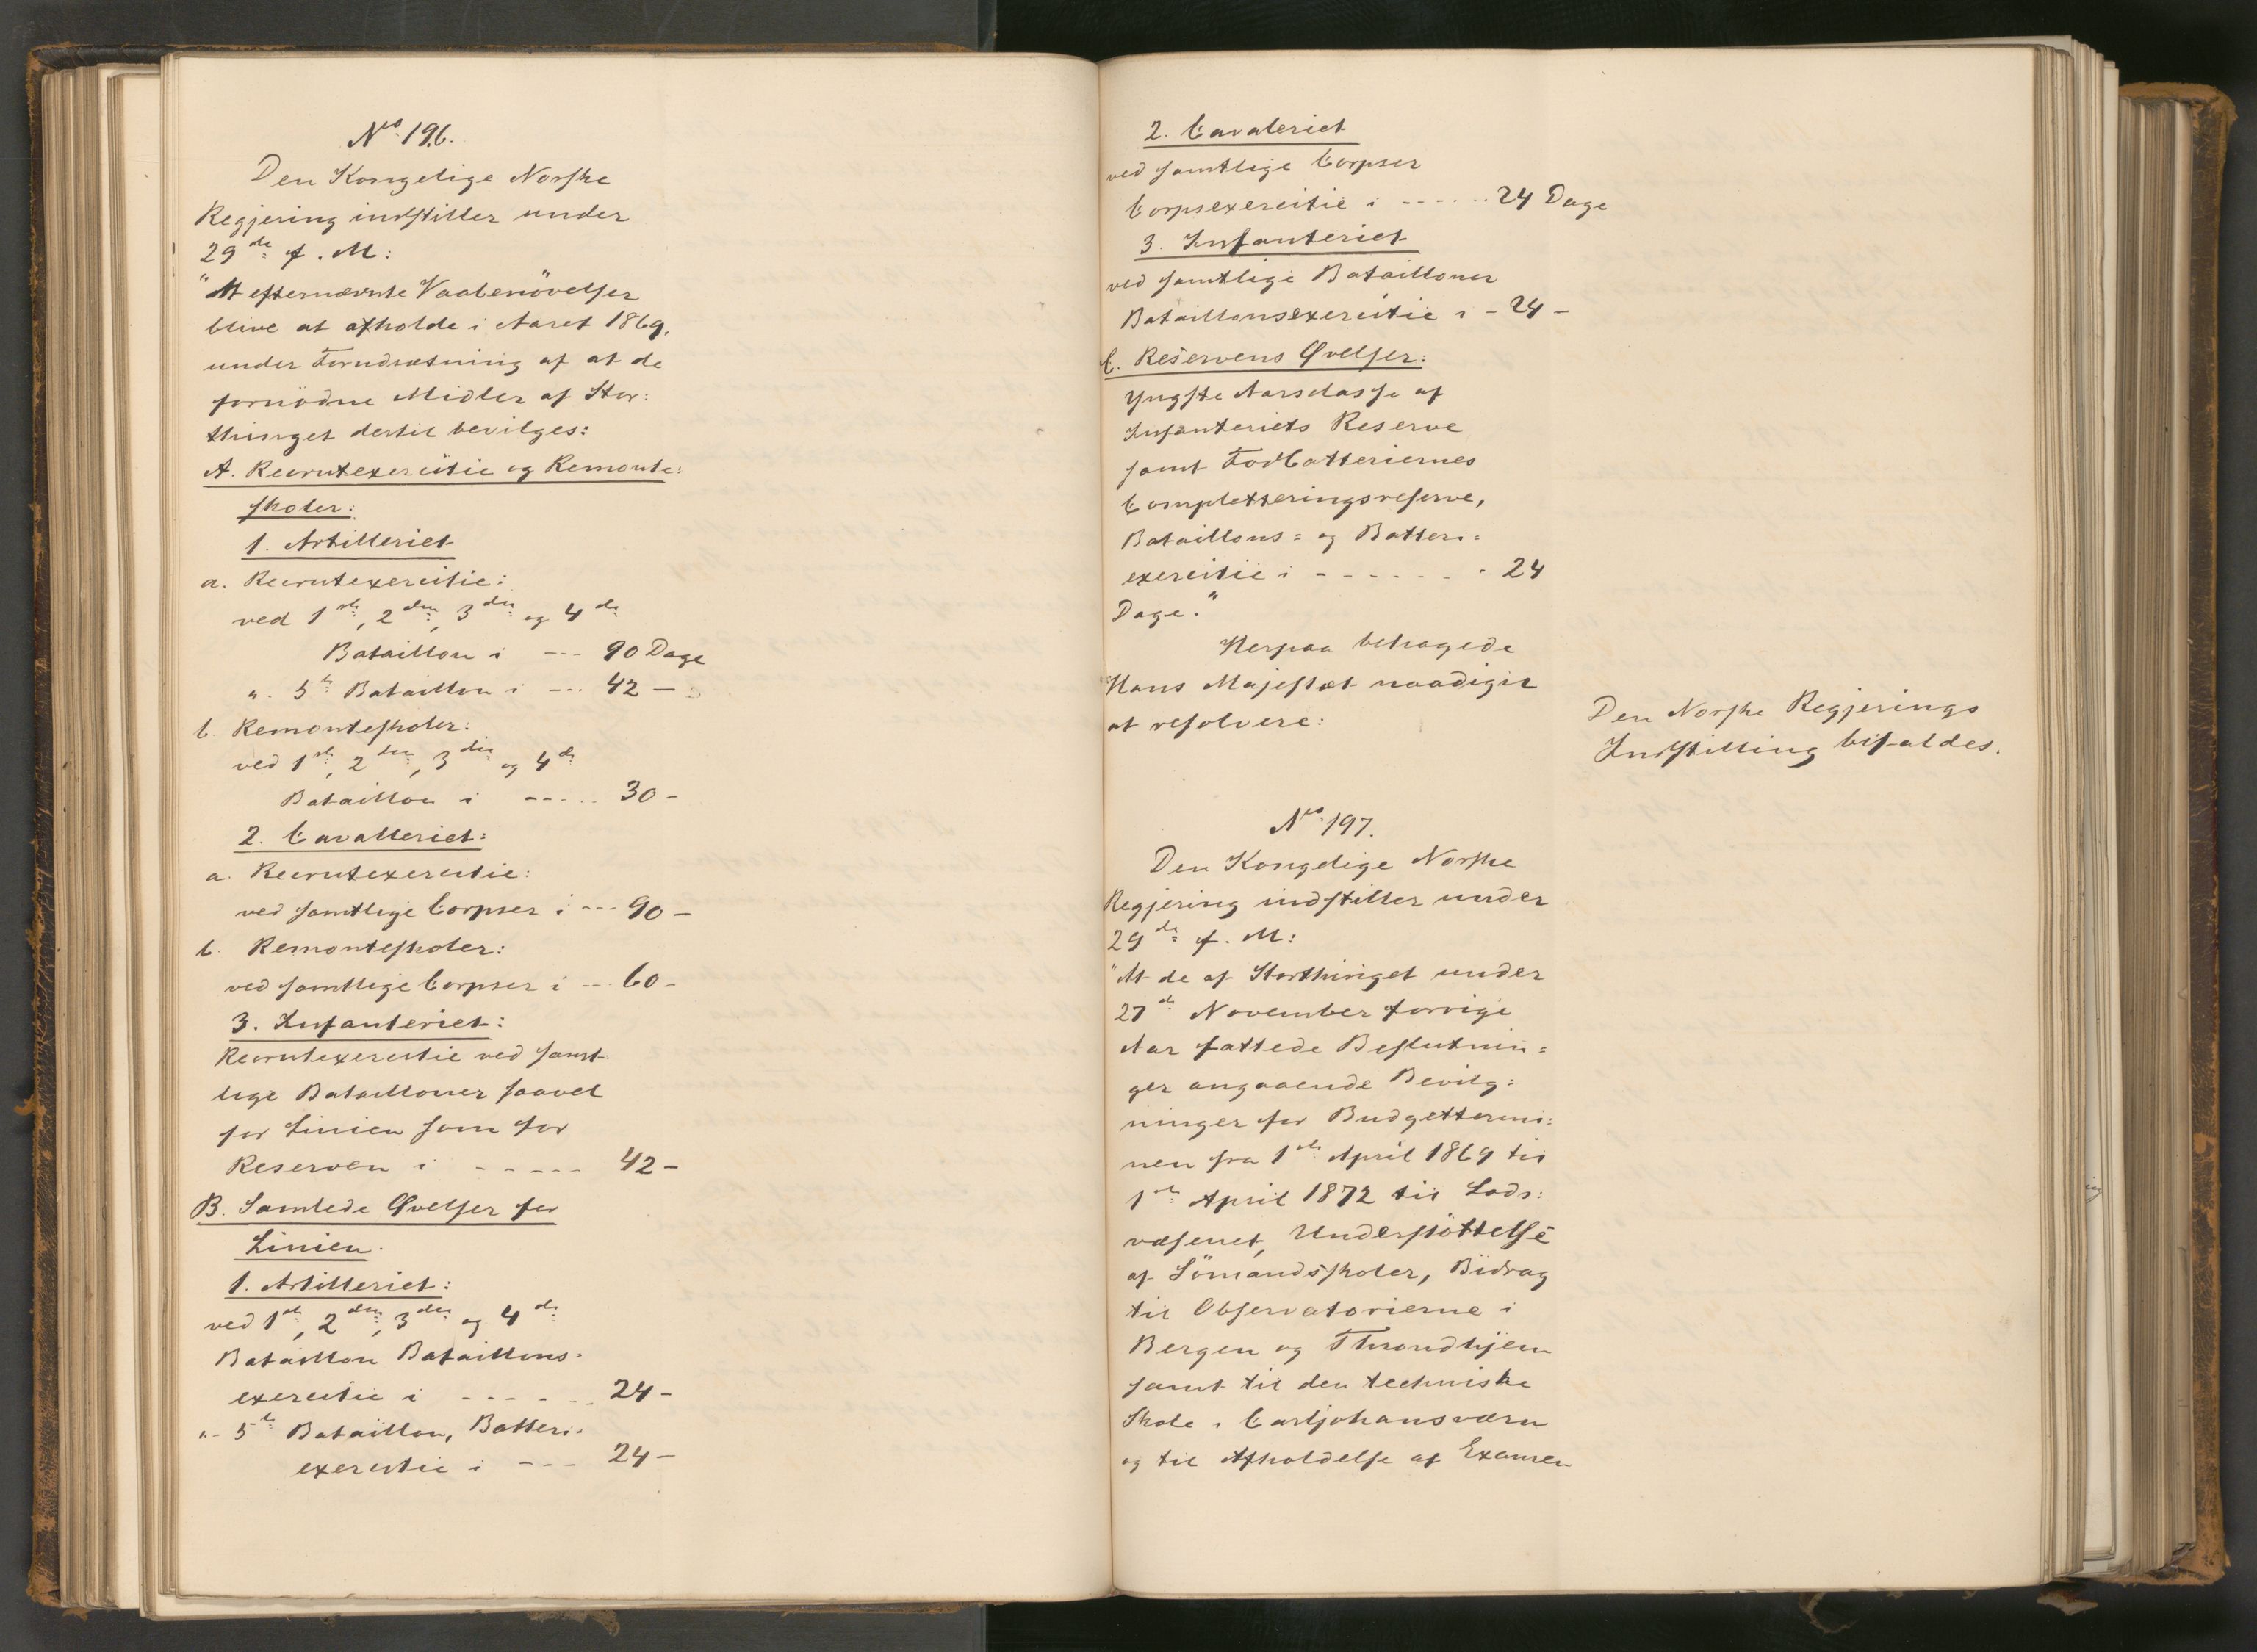 No. 196.
Den Kongelige Norske
Regjering indstiller under
29de f. M:
"At efternævnte Vaabenövelser
blive at afholde i Aaret 1869,
under Forudsætning af at de
fornödne Midler af Stor:
thinget dertil bevilges:
A. Recrutexercitie og Remonte:
skoler:
1. Artilleriet
a. Recrutexercitie:
ved 1ste, 2den, 3die og 4de
Bataillon i --- 90 Dage
"- 5te Bataillon i --- 42 -
b. Remonteskoler:
ved 1ste, 2den, 3die og 4de
Bataillon i ----- 30 -
2. Cavalleriet:
a. Recrutexercitie:
ved samtlige Corpser i --- 90 -
b. Remonteskoler:
ved samtlige Corpser i --- 60 -
3. Infanteriet:
Recrutexercitie ved samt-
lige Batailloner saavel
for Linien som for
Reserven i ----- 42 -
B. Samlede Øvelser for
Linien.
1. Artilleriet:
ved 1ste, 2den, 3die og 4de
Bataillon Bataillons-
exercitie i ------ 24 -
"- 5te Bataillon, Batteri-
exercitie i --- 24 -
2. Cavaleriet
ved samtlige Corpser
Corpsexercitie i ------ 24 Dage
3. Infanteriet
ved samtlige Batailloner
Bataillonsexercitie i - 24 -
C. Reservens Øvelser:
Yngste Aarsclasse af
Infanteriets Reserve
samt Fodbatteriernes
Completteringsreserve,
Bataillons= og Batteri=
exercitie i ------- 24
Dage."
Herpaa behagede
Hans Majestæt naadigst
at resolvere:
Den Norske Regjerings
Indstilling bifaldes.
No. 197.
Den Kongelige Norske
Regjering indstiller under
29de f. M:
"At de af Storthinget under
27de November forrige
Aar fattede Beslutnin=
ger angaaende Bevilg=
ninger for Budgettermi=
nen fra 1ste April 1869 til
1ste April 1872 til Lods:
væsenet, Understöttelse
af Sömandsskoler, Bidrag
til Observatorierne i
Bergen og Throndhjem
samt til den techniske
Skole i Carljohansværn
og til Afholdelse af Examen